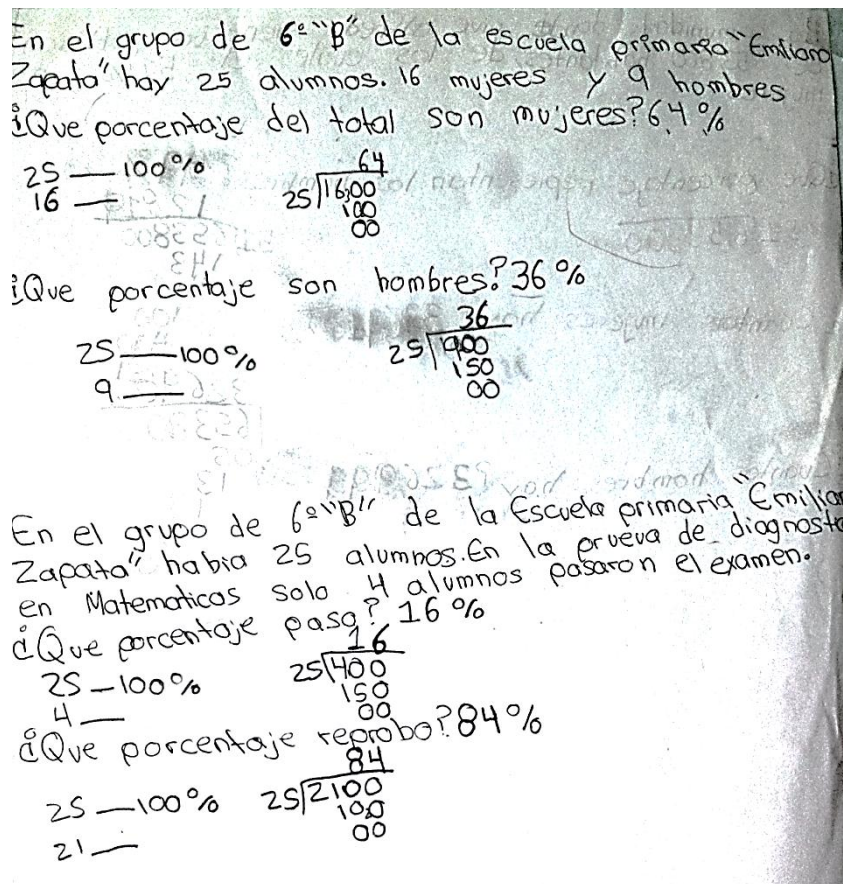 En el grupo de 6º "B" de la escuela primaria "Emiliano
Zapata" hay 25 alumnos. 16 mujeres y 9 hombres
¿Que porcentaje del total son mujeres? 64 %
25 — 100%
16 —
64
25 1600
100
00
¿Que porcentaje son hombres? 36 %
25 — 100%
9 —
36
25 900
150
00
En el grupo de 6º "B" de la Escuela primaria "Emilian
Zapata" habia 25 alumnos. En la prueva de diagnostc
en Matematicas solo 4 alumnos pasaron el examen.
¿Que porcentaje paso? 16 %
25 — 100%
4 —
16
25 400
150
00
¿Que porcentaje reprobo? 84 %
25 — 100%
21 —
84
25 2100
100
00